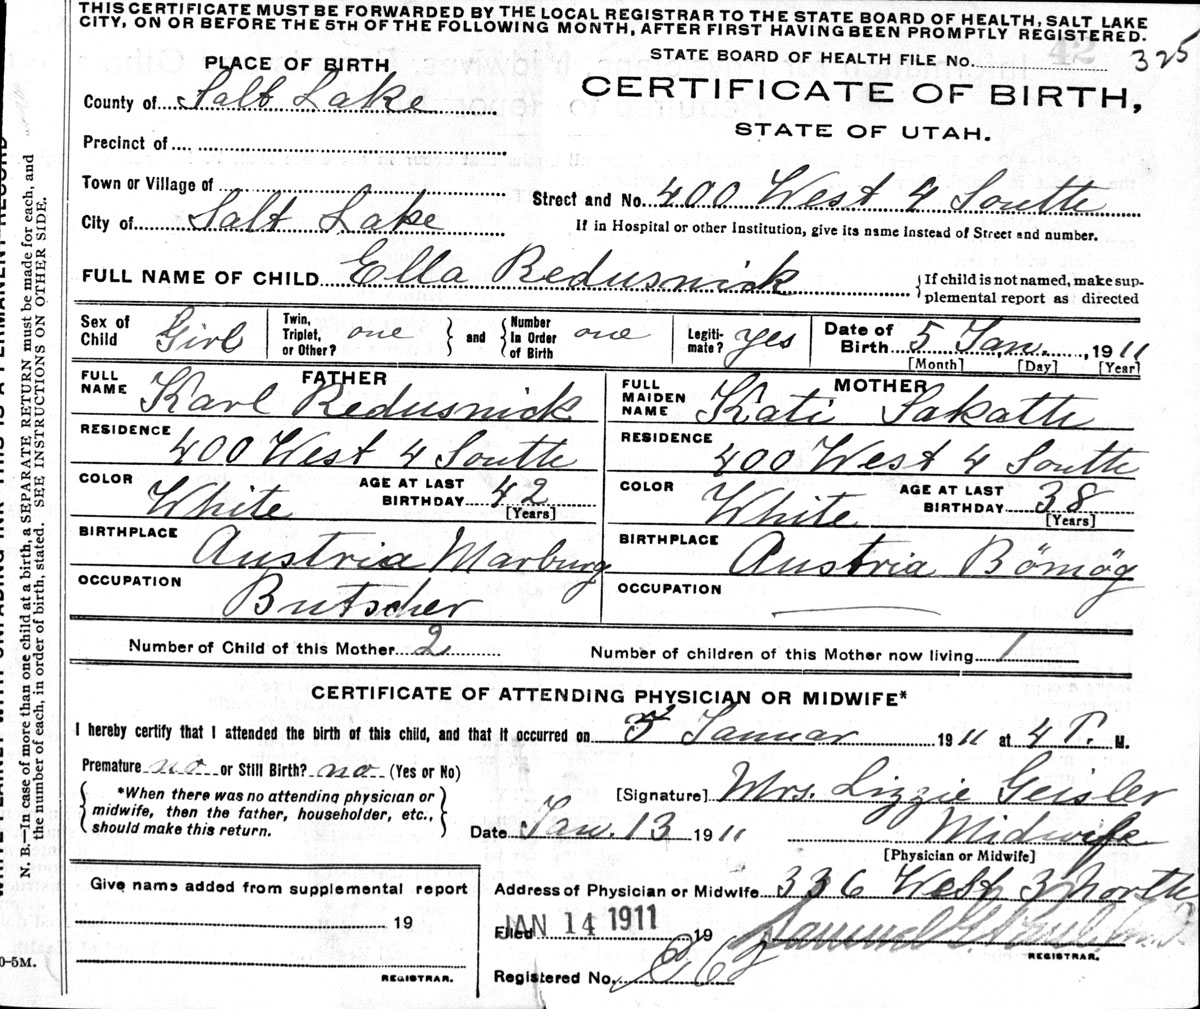 THIS CERTIFICATE MUST BE FORWARDED BY THE LOCAL REGISTRAR TO THE STATE BOARD OF HEALTH, SALT LAKE
CITY, ON OR BEFORE THE 5TH OF THE FOLLOWING MONTH, AFTER FIRST HAVING BEEN PROMPTLY REGISTERED.
STATE BOARD OF HEALTH FILE No. 42 325
PLACE OF BIRTH
CERTIFICATE OF BIRTH,
STATE OF UTAH.
County of Salt Lake
Precinct of
Town or Village of
Street and No. 400 West 4 South
City of Salt Lake
If in Hospital or other Institution, give its name instead of Street and number.
FULL NAME OF CHILD Ella Redusnick
{If child is not named, make sup-
plemental report as directed
Sex of Child Girl
Twin, Triplet, or Other? one } and { Number In Order of Birth one
Legiti-mate? yes
Date of Birth 5 Jan. , 1911
[Month] [Day] [Year]
FATHER
FULL NAME Karl Redusnick
RESIDENCE 400 West 4 South
COLOR White AGE AT LAST BIRTHDAY 42
[Years]
BIRTHPLACE Austria Marburg
OCCUPATION Butscher
MOTHER
FULL MAIDEN NAME Kati Sakatti
RESIDENCE 400 West 4 South
COLOR White AGE AT LAST BIRTHDAY 38
[Years]
BIRTHPLACE Austria Bömög
OCCUPATION
Number of Child of this Mother 2 Number of children of this Mother now living 1
CERTIFICATE OF ATTENDING PHYSICIAN OR MIDWIFE*
I hereby certify that I attended the birth of this child, and that it occurred on 5 Januar 1911 at 4 P. M.
Premature no or Still Birth? no (Yes or No)
{ *When there was no attending physician or
midwife, then the father, householder, etc.,
should make this return. }
[Signature] Mrs. Lizzie Geisler
Date Jan. 13 1911 Midwife
[Physician or Midwife]
Give name added from supplemental report
19
REGISTRAR.
Address of Physician or Midwife 336 West 3 North
Filed JAN 14 1911 19 Samuel G. Paul
REGISTRAR.
Registered No.
0-5M.
N. B.—In case of more than one child at a birth, a SEPARATE RETURN must be made for each, and
the number of each, in order of birth, stated. SEE INSTRUCTIONS ON OTHER SIDE.